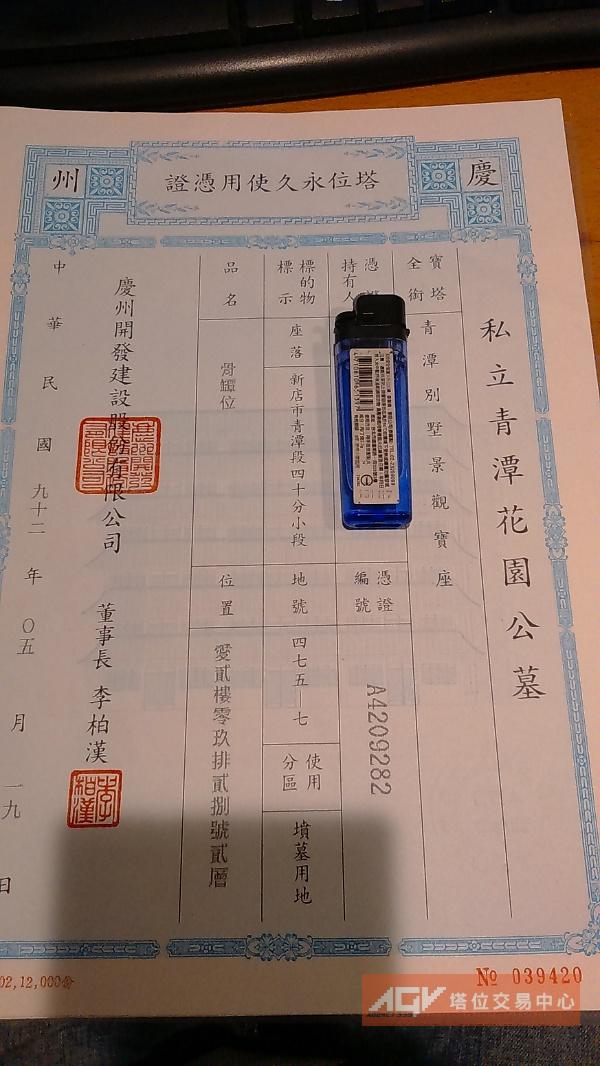 慶
州
塔位永久使用憑證
私立青潭花園公墓
寶塔全銜
青潭別墅景觀寶座
持有人
憑證編號
A4209282
標的物標示
座落
新店市青潭段四十分小段
地號
四七五 七
使用分區
墳墓用地
品名
骨罈位
位置
愛貳樓零玖排貳捌號貳層
慶州開發建設股份有限公司
董事長 李柏漢
李柏漢
中華民國九十二年〇五月一九日
02,12,000份
№ 039420
AGV 塔位交易中心